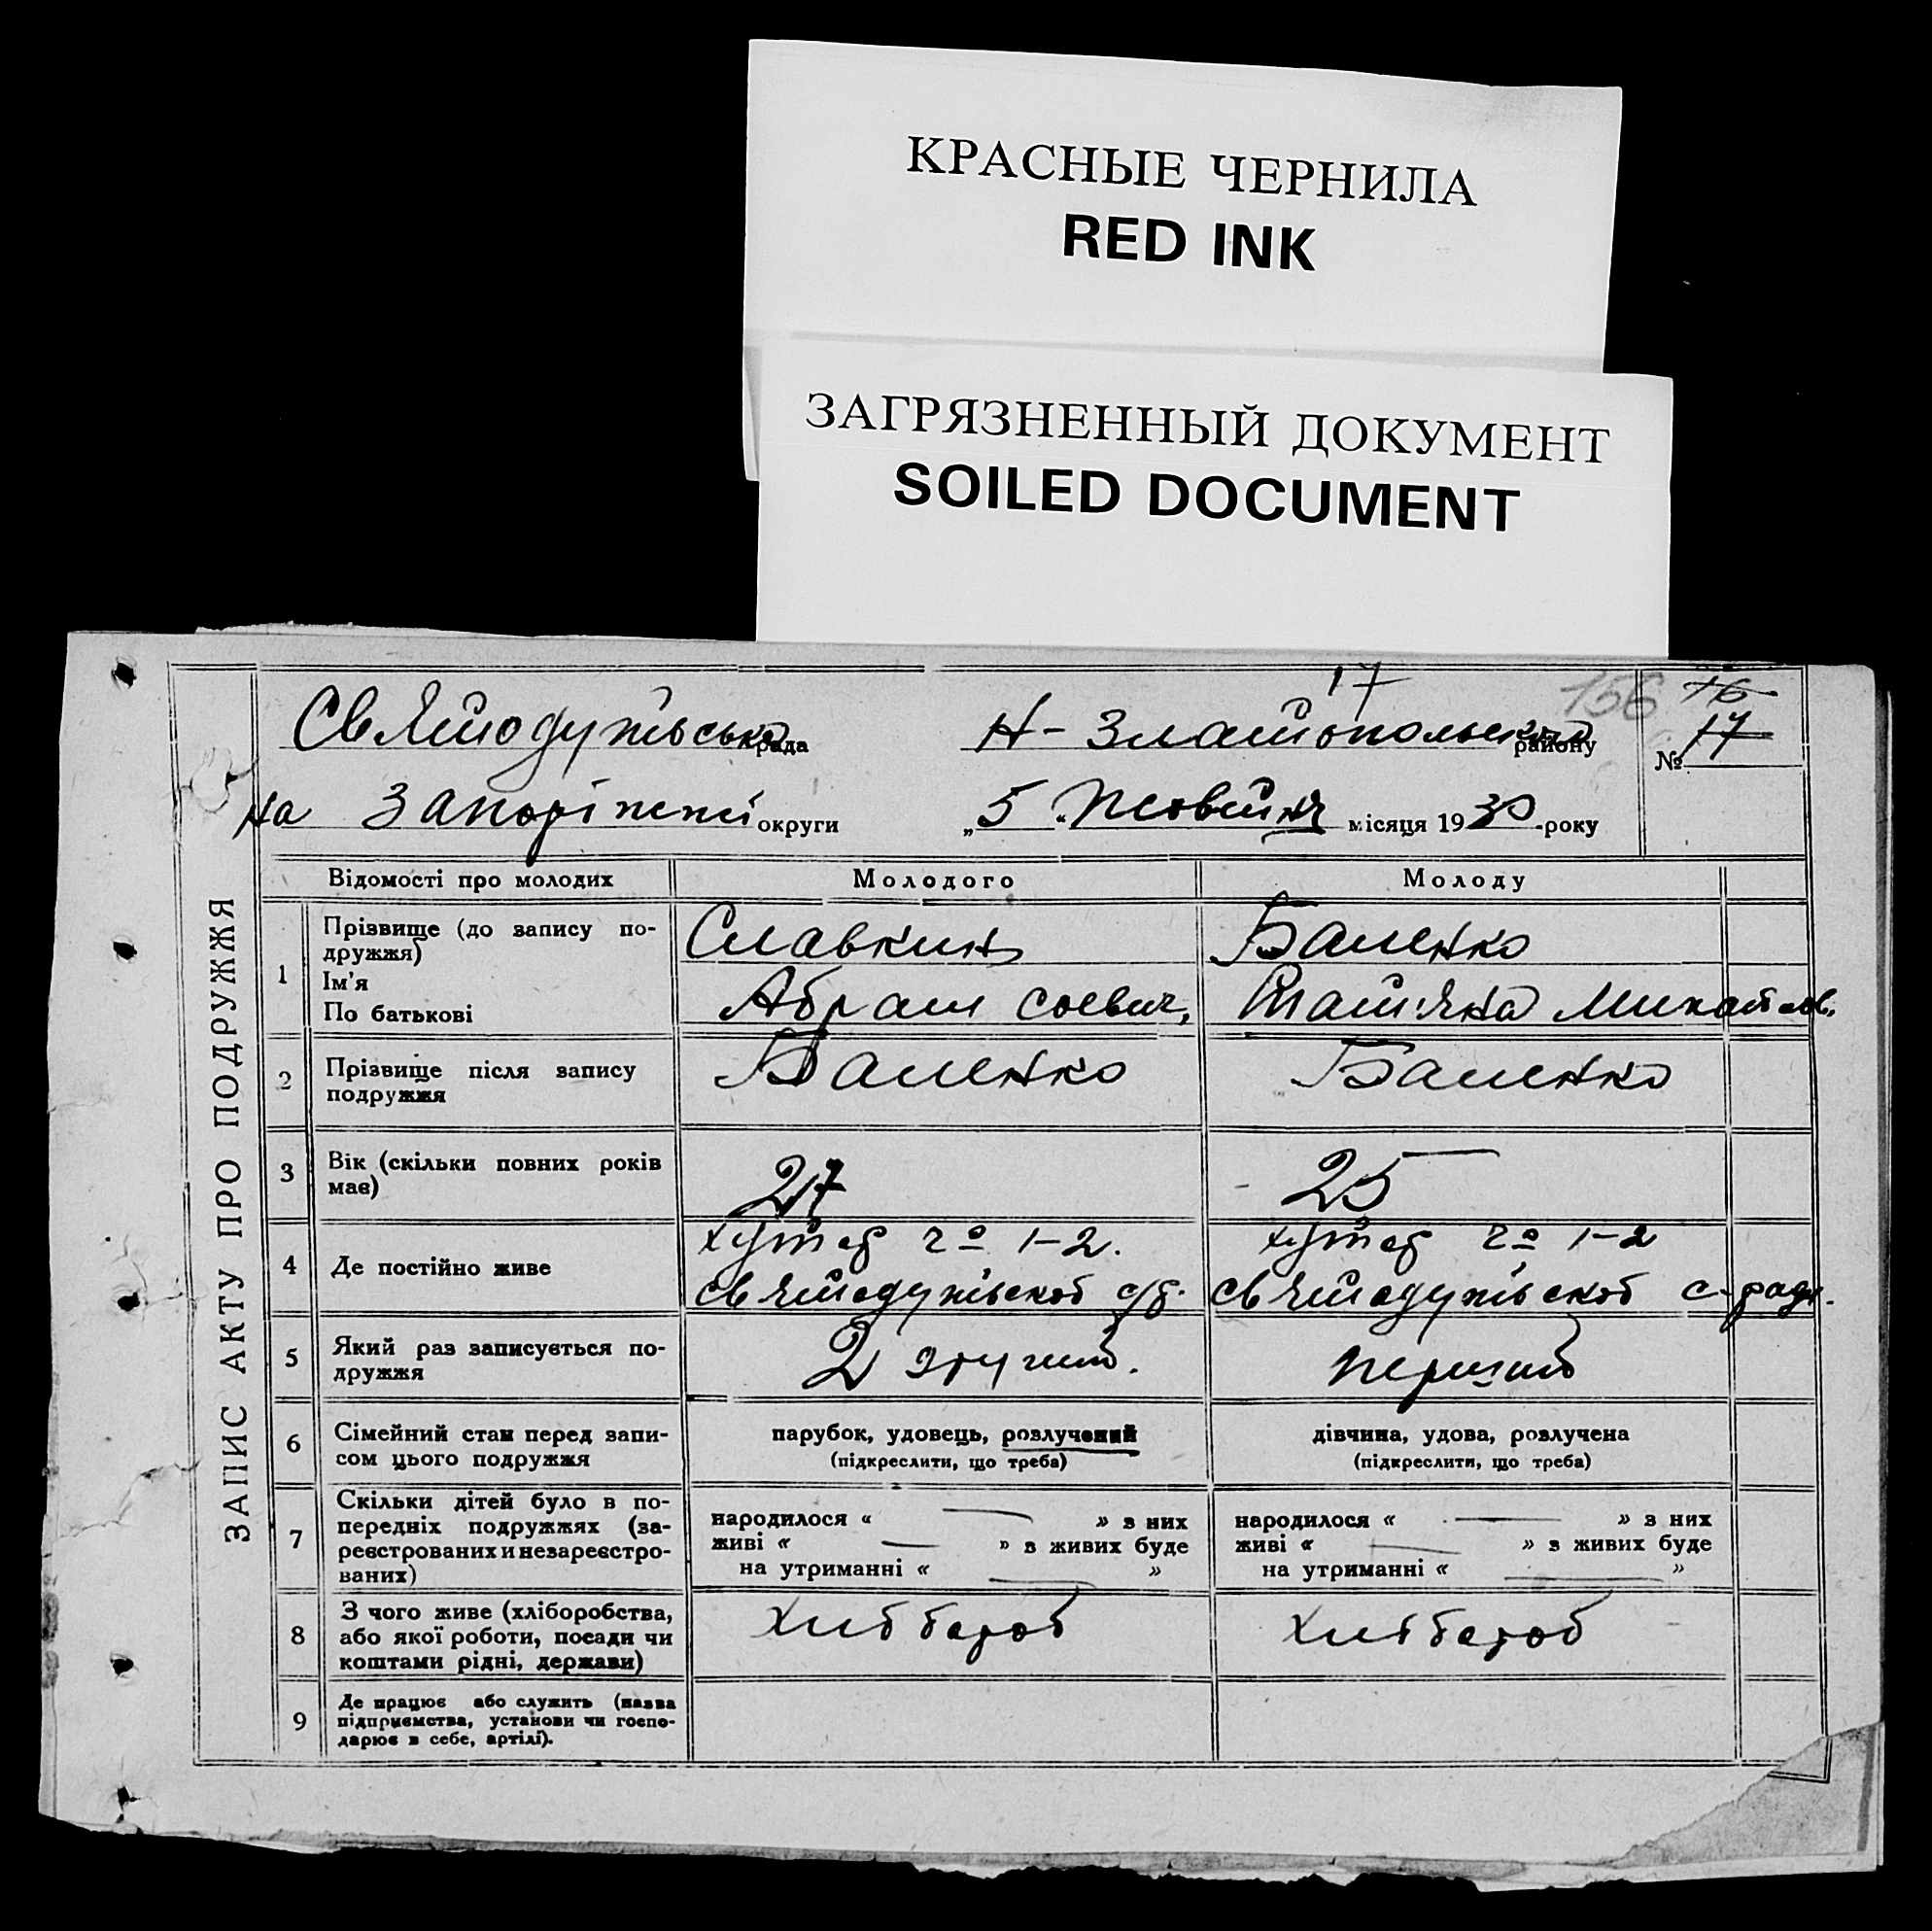 КРАСНЫЕ ЧЕРНИЛА
RED INK
ЗАГРЯЗНЕННЫЙ ДОКУМЕНТ
SOILED DOCUMENT
17
156 16
Святодухівська рада Н-Златопольського району № 17
на Запоріжжі округи „5" Жовтня місяця 1930 року
ЗАПИС АКТУ ПРО ПОДРУЖЖЯ
Відомості про молодих Молодого Молоду
1 Прізвище (до запису по-
дружжя)
Ім'я
По батькові
Славкин
Абрам Соевич,
Баленко
Татіяна Михайлов.
2 Прізвище після запису
подружжя
Баленко Баленко
3 Вік (скільки повних років
має)
27 25
4 Де постійно живе
хутор 1-2.
Святодухівской с/р.
хутор 1-2
Святодухівской с-ради.
5 Який раз записується по-
дружжя
2 другий. перший
6 Сімейний стан перед запи-
сом цього подружжя
парубок, удовець, розлучений
(підкреслити, що треба)
дівчина, удова, розлучена
(підкреслити, що треба)
7 Скільки дітей було в по-
передніх подружжях (за-
реєстрованих и незареєстро-
ваних)
народилося « — » з них
живі « — » з живих буде
на утриманні « — »
народилося « — » з них
живі « — » з живих буде
на утриманні « — »
8 З чого живе (хліборобства,
або якої роботи, посади чи
коштами рідні, держави)
хлібороб хлібороб
9 Де працює або служить (назва
підприємства, установи чи госпо-
дарює в себе, артілі).